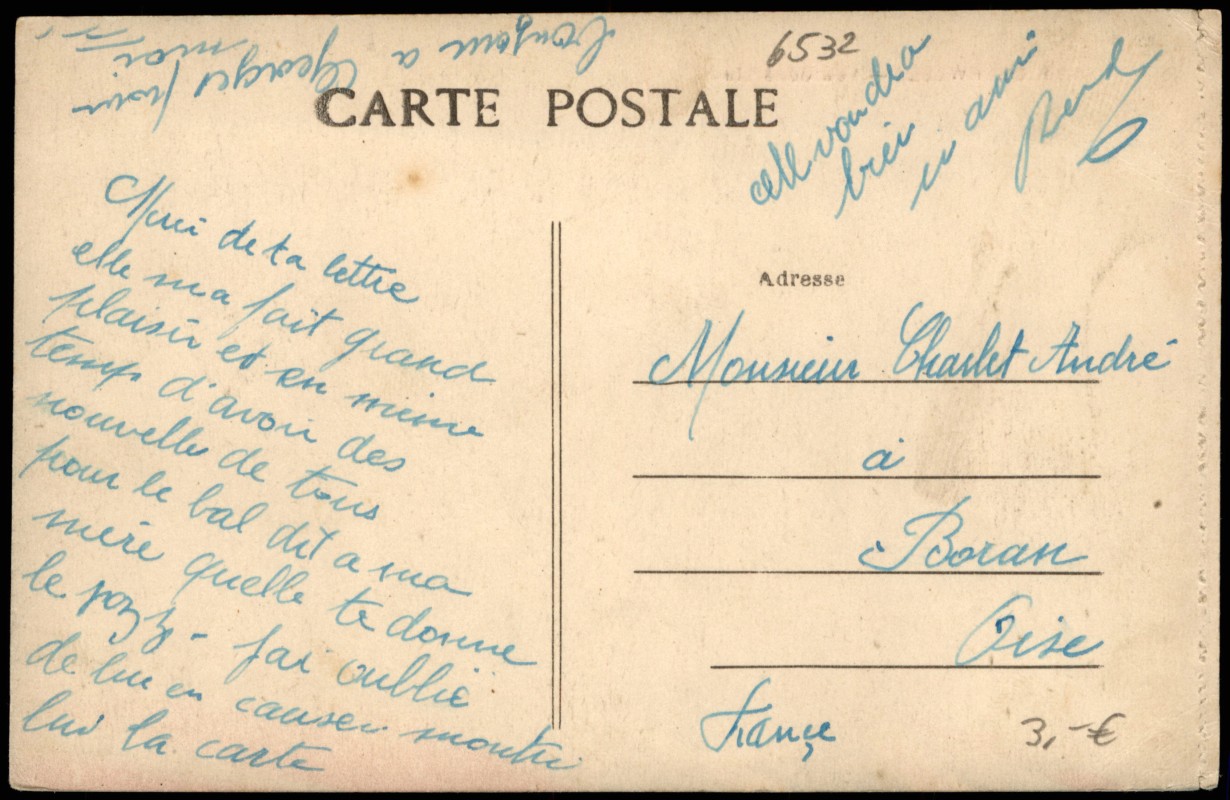 6532
CARTE POSTALE
Merci de ta lettre
elle ma fait grand
plaisir et en même
temps d'avoir des
nouvelles de tous
pour le bal dit a ma
mère quelle te donne
le jazz - jai oublié
de lui en causer montre
lui la carte
elle voudra
bien
un ami
Bonjour a Georges pour
moi
Adresse
Monsieur Charlet André
à
Boran
Oise
France
3,-€